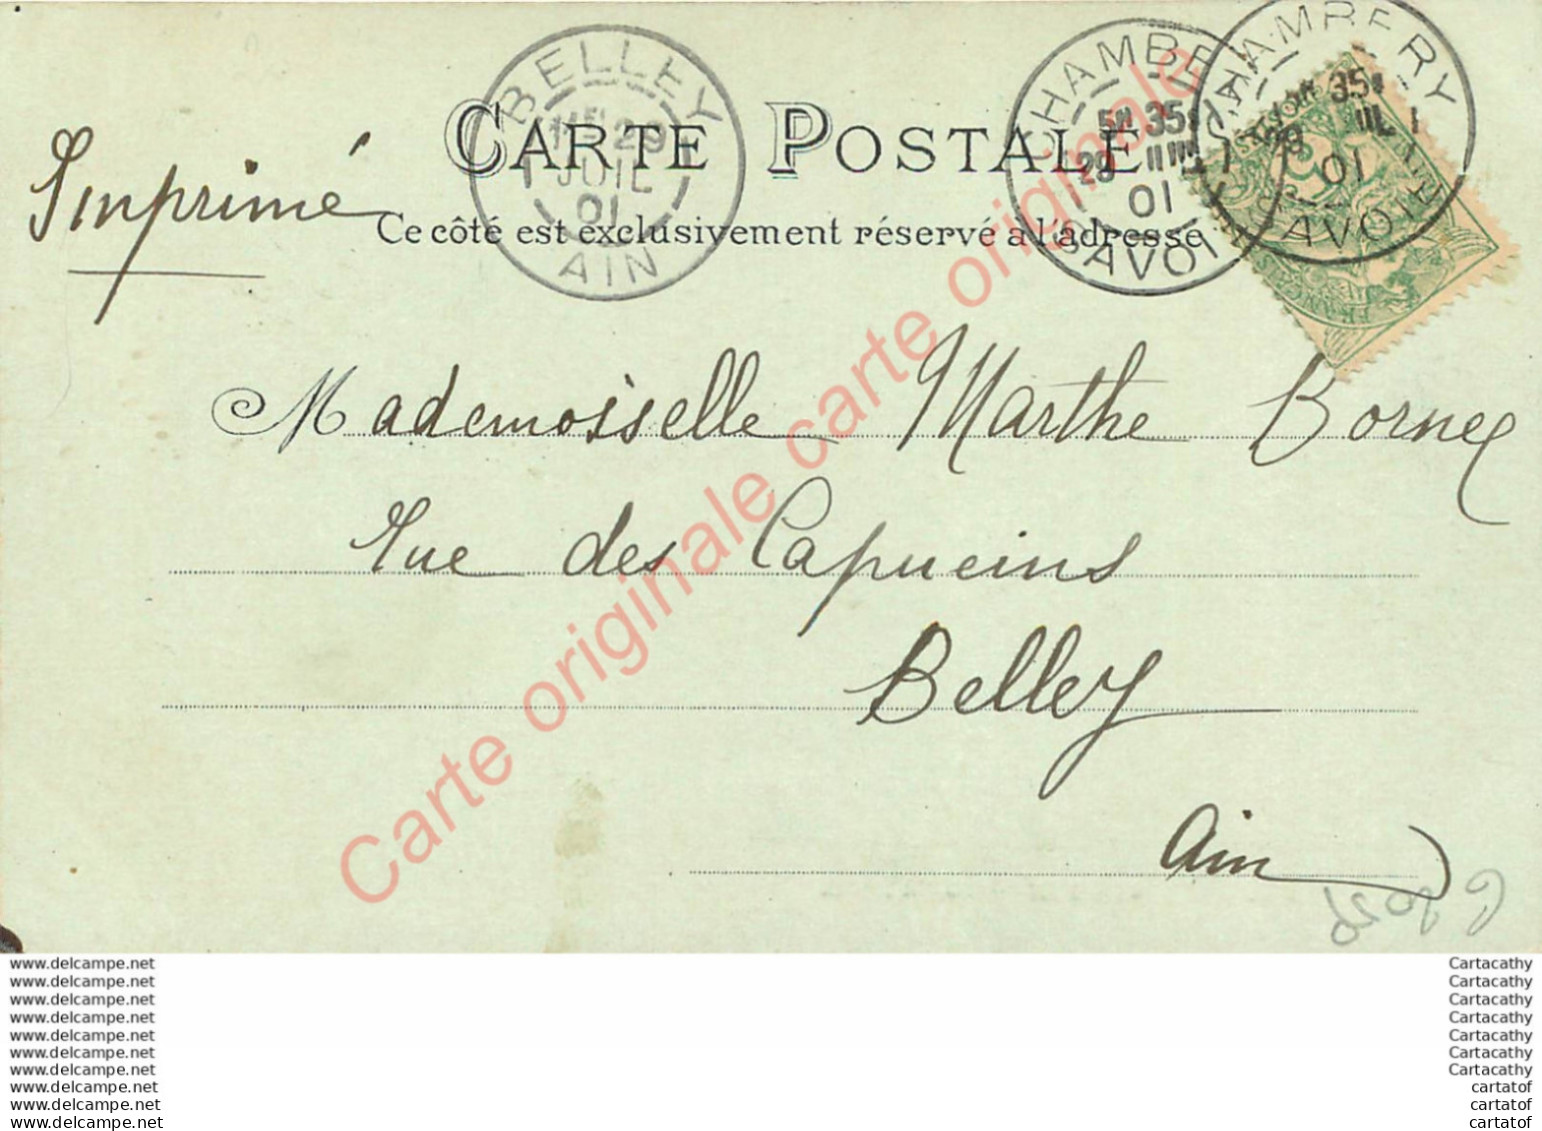 BELLEY
1E 29
JUIL
01
AIN
CHAMBERY
5M 35
29 JUIL
01
SAVOIE
CHAMBERY
35
29 JUIL
01
SAVOIE
CARTE POSTALE
Imprimé
Ce côté est exclusivement réservé à l'adresse
Mademoisselle Marthe Borney
Rue des Capucins
Belley
Ain
Carte originale carte originale
www.delcampe.net
www.delcampe.net
www.delcampe.net
www.delcampe.net
www.delcampe.net
www.delcampe.net
www.delcampe.net
www.delcampe.net
www.delcampe.net
www.delcampe.net
Cartacathy
Cartacathy
Cartacathy
Cartacathy
Cartacathy
Cartacathy
Cartacathy
cartatof
cartatof
cartatof